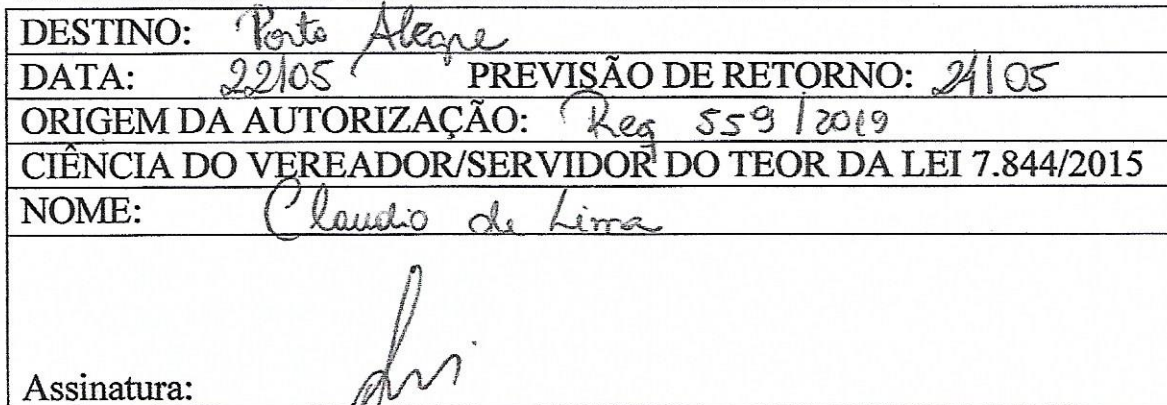 DESTINO: Porto Alegre
DATA: 22/05 PREVISÃO DE RETORNO: 24/05
ORIGEM DA AUTORIZAÇÃO: Req 559/2019
CIÊNCIA DO VEREADOR/SERVIDOR DO TEOR DA LEI 7.844/2015
NOME: Claudio de Lima
Assinatura: